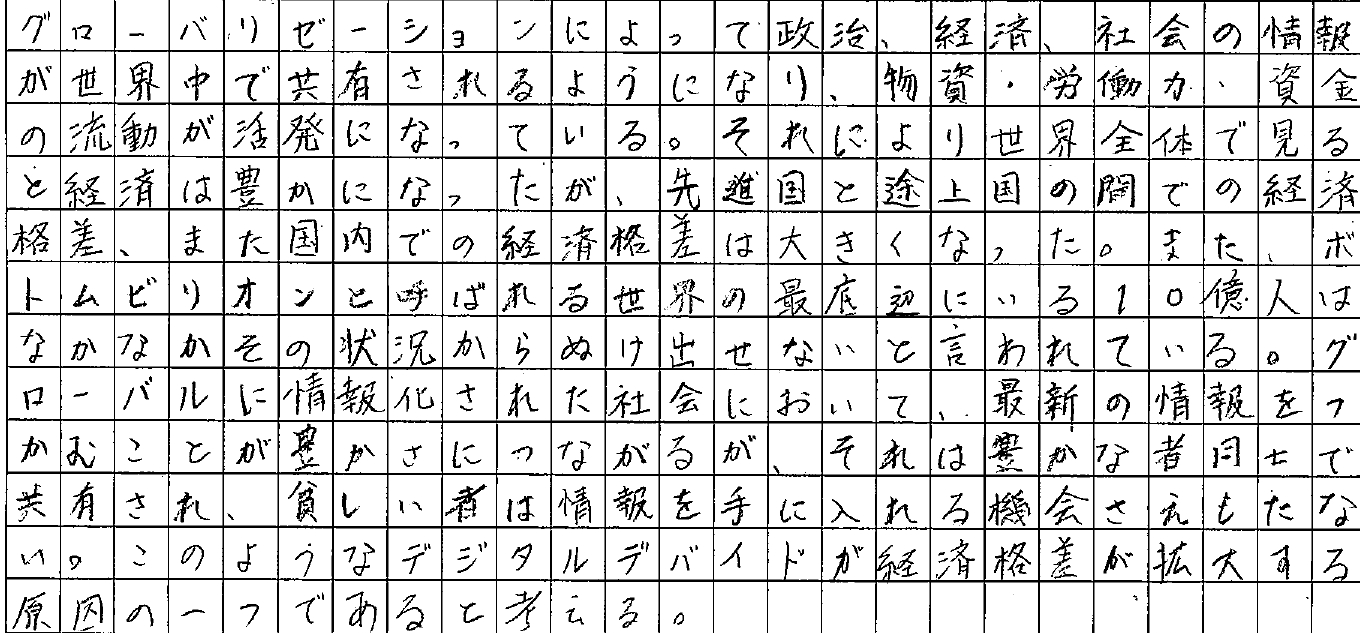 グローバリゼーションによって政治、経済、社会の情報
が世界中で共有されるようになり、物資・労働力・資金
の流動が活発になっている。それにより世界全体で見る
と経済は豊かになったが、先進国と途上国の間での経済
格差、また国内での経済格差は大きくなった。また、ボ
トムビリオンと呼ばれる世界の最底辺にいる10億人は
なかなかその状況からぬけ出せないと言われている。グ
ローバルに情報化された社会において、最新の情報をつ
かむことが豊かさにつながるが、それは豊かな者同士で
共有され、貧しい者は情報を手に入れる機会さえもたな
い。このようなデジタルデバイドが経済格差が拡大する
原因の一つであると考える。